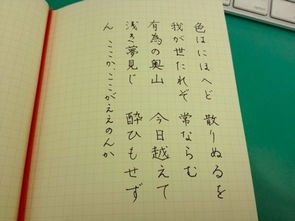 色はにほへど 散りぬるを
我が世たれぞ 常ならむ
有為の奥山 今日越えて
浅き夢見じ 酔ひもせず
ん、ここか、ここがええのんか